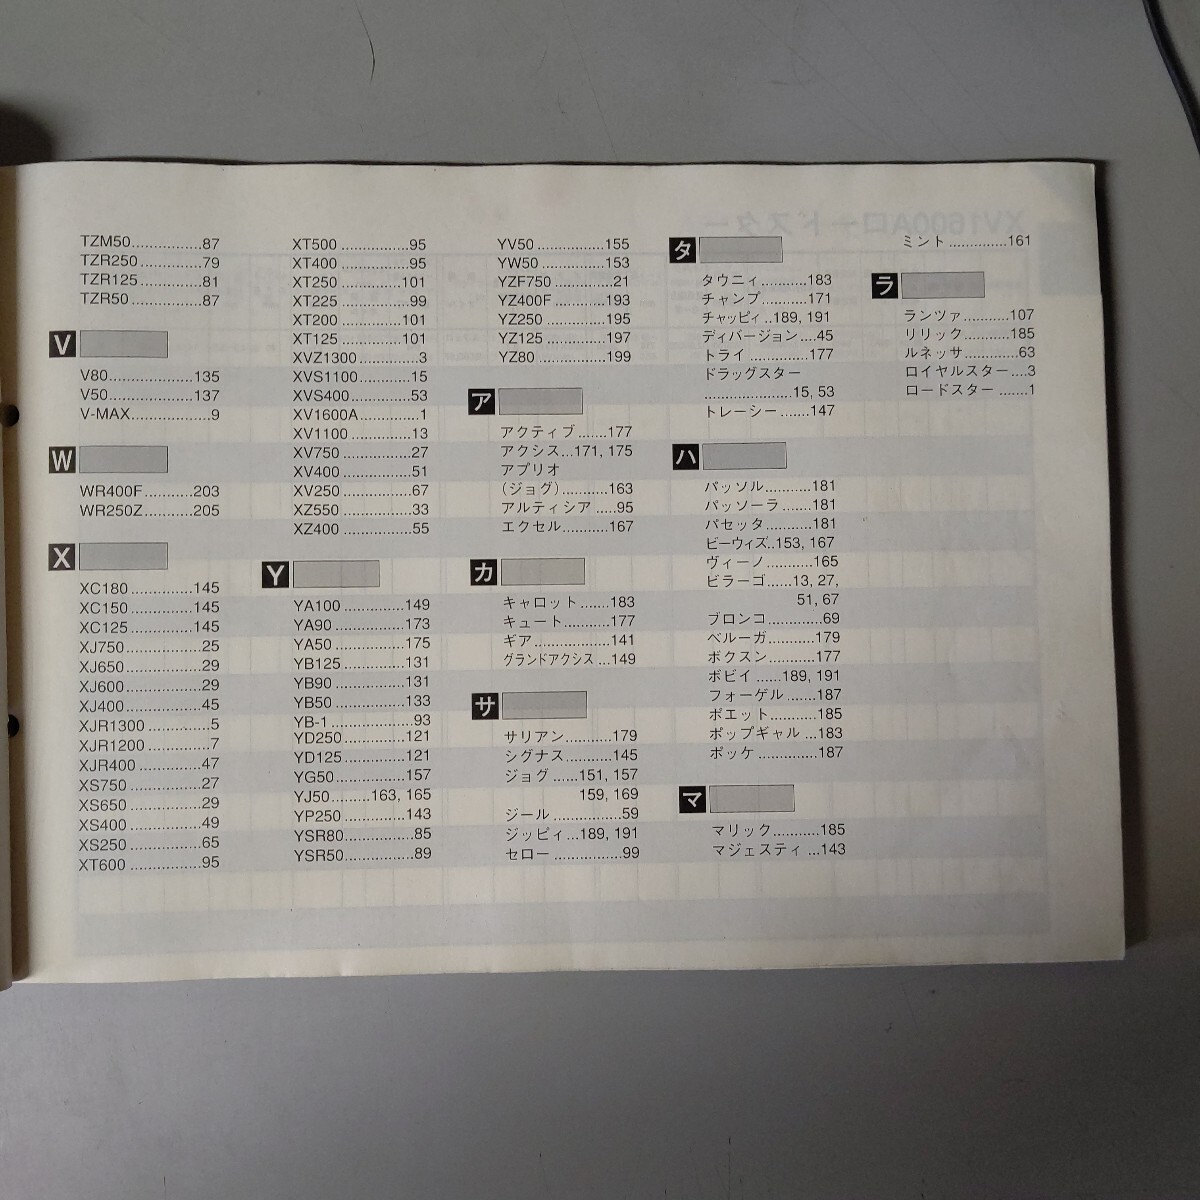 TZM50................87
TZR250...............79
TZR125...............81
TZR50................87
V
V80...................135
V50...................137
V-MAX..................9
W
WR400F...........203
WR250Z...........205
X
XC180..............145
XC150..............145
XC125..............145
XJ750.................25
XJ650.................29
XJ600.................29
XJ400.................45
XJR1300...............5
XJR1200...............7
XJR400...............47
XS750.................27
XS650.................29
XS400.................49
XS250.................65
XT600................95
XT500...............95
XT400...............95
XT250..............101
XT225...............99
XT200..............101
XT125..............101
XVZ1300..............3
XVS1100............15
XVS400..............53
XV1600A..............1
XV1100..............13
XV750................27
XV400................51
XV250................67
XZ550................33
XZ400................55
Y
YA100..............149
YA90................173
YA50................175
YB125..............131
YB90................131
YB50................133
YB-1.................93
YD250..............121
YD125..............121
YG50................157
YJ50.........163, 165
YP250..............143
YSR80................85
YSR50................89
YV50...............155
YW50..............153
YZF750..............21
YZ400F............193
YZ250..............195
YZ125..............197
YZ80................199
ア
アクティブ.......177
アクシス...171, 175
アプリオ
(ジョグ)...........163
アルティシア.....95
エクセル...........167
カ
キャロット.......183
キュート...........177
ギア..................141
グランドアクシス...149
サ
サリアン...........179
シグナス...........145
ジョグ......151, 157
159, 169
ジール................59
ジッピィ...189, 191
セロー................99
タ
タウニィ...........183
チャンプ..........171
チャッピィ..189, 191
ディバージョン....45
トライ..............177
ドラッグスター
.....................15, 53
トレーシー.......147
ハ
パッソル...........181
パッソーラ.......181
パセッタ...........181
ビーウィズ..153, 167
ヴィーノ...........165
ビラーゴ......13, 27,
51, 67
ブロンコ.............69
ベルーガ...........179
ボクスン...........177
ボビイ......189, 191
フォーゲル.......187
ポエット...........185
ポップギャル...183
ポッケ..............187
マ
マリック...........185
マジェスティ...143
ミント..............161
ラ
ランツァ...........107
リリック...........185
ルネッサ.............63
ロイヤルスター....3
ロードスター.......1
XV1600Aロードスター